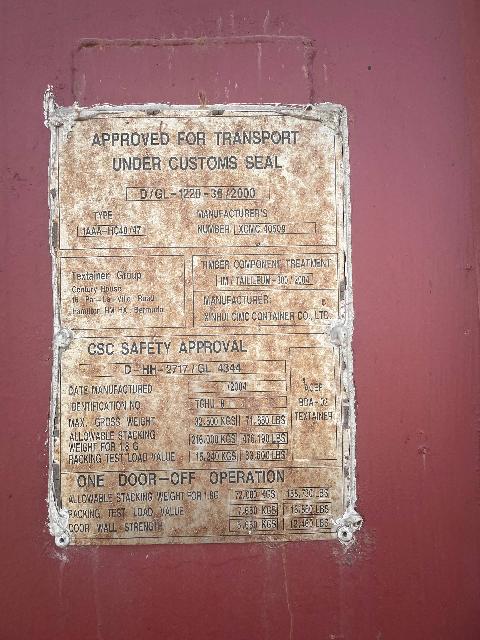 APPROVED FOR TRANSPORT
UNDER CUSTOMS SEAL
D/GL-1220-36/2000
TYPE
1AAA-HC40/47
MANUFACTURER'S
NUMBER XCMC 40509
Textainer Group
Century House
16 Par-La-Ville Road
Hamilton HM HX, Bermuda
TIMBER COMPONENT TREATMENT
IM / TAILILEUM-300 / 2004
MANUFACTURER:
XINHUI CIMC CONTAINER CO., LTD.
CSC SAFETY APPROVAL
D-HH-2717/GL 4344
DATE MANUFACTURED /2004
IDENTIFICATION NO. TGHU 9
MAX. GROSS WEIGHT 32.500 KGS 71.650 LBS
ALLOWABLE STACKING
WEIGHT FOR 1.8 G 216.000 KGS 476.190 LBS
RACKING TEST LOAD VALUE 15.240 KGS 33.600 LBS
ACEP
BDA-02
TEXTAINER
ONE DOOR-OFF OPERATION
ALLOWABLE STACKING WEIGHT FOR 1.8G 72.000 KGS LBS
RACKING TEST LOAD VALUE KGS LBS
DOOR WALL STRENGTH KGS LBS